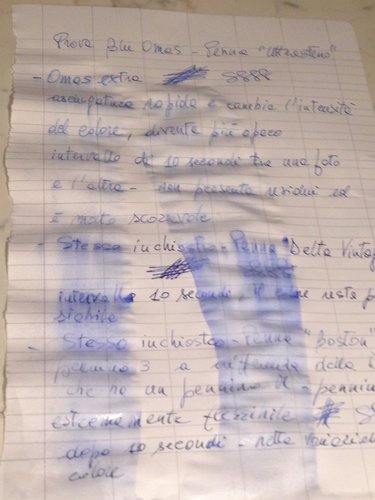 Prova Blu Omas - Penna "Ultrasteno"
- Omas extra S888
asciugatura rapida e cambia l'intensità
del colore, diventa più opaco
intervallo di 10 secondi tra una foto
e l'altra - non presenta residui ed
è molto scorrevole
- Stesso inchiostro - Penna Delta Vintag
intervallo 10 secondi, il colore resta p
- Stesso inchiostro - Penna "Boston"
pennino 3 a differenza della
che ha un pennino - pennin
estremamente flessibile
dopo 10 secondi - netta variazione
colore